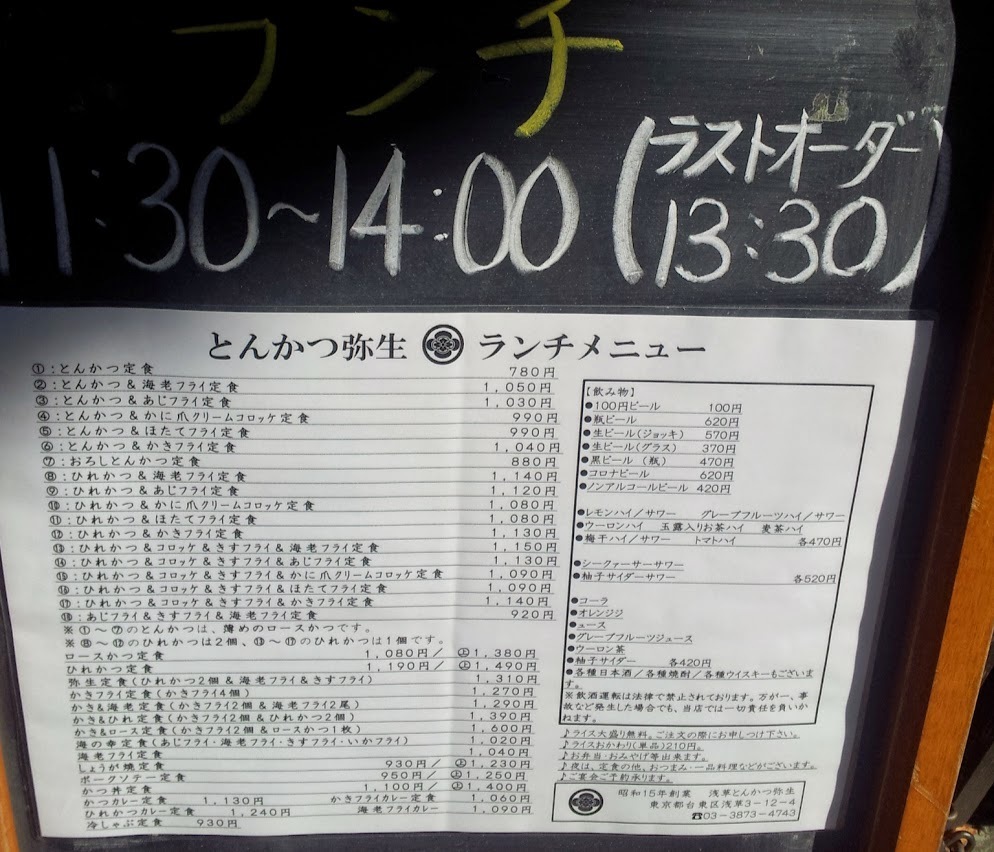 ランチ
11:30～14:00（ラストオーダー 13:30）
とんかつ弥生 ランチメニュー
①:とんかつ定食 780円
②:とんかつ&海老フライ定食 1,050円
③:とんかつ&あじフライ定食 1,030円
④:とんかつ&かに爪クリームコロッケ定食 990円
⑤:とんかつ&ほたてフライ定食 990円
⑥:とんかつ&かきフライ定食 1,040円
⑦:おろしとんかつ定食 880円
⑧:ひれかつ&海老フライ定食 1,140円
⑨:ひれかつ&あじフライ定食 1,120円
⑩:ひれかつ&かに爪クリームコロッケ定食 1,080円
⑪:ひれかつ&ほたてフライ定食 1,080円
⑫:ひれかつ&かきフライ定食 1,130円
⑬:ひれかつ&コロッケ&きすフライ&海老フライ定食 1,150円
⑭:ひれかつ&コロッケ&きすフライ&あじフライ定食 1,130円
⑮:ひれかつ&コロッケ&きすフライ&かに爪クリームコロッケ定食 1,090円
⑯:ひれかつ&コロッケ&きすフライ&ほたてフライ定食 1,090円
⑰:ひれかつ&コロッケ&きすフライ&かきフライ定食 1,140円
⑱:あじフライ&きすフライ&海老フライ定食 920円
※①～⑦のとんかつは、薄めのロースかつです。
※⑧～⑫のひれかつは2個、⑬～⑰のひれかつは1個です。
ロースかつ定食 1,080円／ ㊤1,380円
ひれかつ定食 1,190円／ ㊤1,490円
弥生定食(ひれかつ2個&海老フライ&きすフライ) 1,310円
かきフライ定食(かきフライ4個) 1,270円
かき&海老定食(かきフライ2個&海老フライ2尾) 1,290円
かき&ひれ定食(かきフライ2個&ひれかつ2個) 1,390円
かき&ロース定食(かきフライ2個&ロースかつ1枚) 1,600円
海の幸定食(あじフライ・海老フライ・きすフライ・いかフライ) 1,020円
海老フライ定食 1,040円
しょうが焼定食 930円／ ㊤1,230円
ポークソテー定食 950円／ ㊤1,250円
かつ丼定食 1,100円／ ㊤1,400円
かつカレー定食 1,130円 かきフライカレー定食 1,060円
ひれかつカレー定食 1,240円 海老フライカレー 1,090円
冷しゃぶ定食 930円
【飲み物】
●100円ビール 100円
●瓶ビール 620円
●生ビール(ジョッキ) 570円
●生ビール(グラス) 370円
●黒ビール (瓶) 470円
●コロナビール 620円
●ノンアルコールビール 420円
●レモンハイ／サワー グレープフルーツハイ／サワー
●ウーロンハイ 玉露入りお茶ハイ 麦茶ハイ
●梅干ハイ／サワー トマトハイ 各470円
●シークァーサーサワー
●柚子サイダーサワー 各520円
●コーラ
●オレンジジ
●ュース
●グレープフルーツジュース
●ウーロン茶
●柚子サイダー 各420円
●各種日本酒／各種焼酎／各種ウイスキーもございま
す。
※飲酒運転は法律で禁止されております。万が一、事
故など発生した場合でも、当店では一切責任を負いか
ねます。
♪ライス大盛り無料。ご注文の際にお申しつけ下さい。
♪ライスおかわり(単品)210円。
♪お弁当・おみやげ等出来ます。
♪夜は、定食の他、おつまみ・一品料理などがございます。
♪ご宴会ご予約承ります。
昭和15年創業 浅草とんかつ弥生
東京都台東区浅草3-12-4
☎03-3873-4743